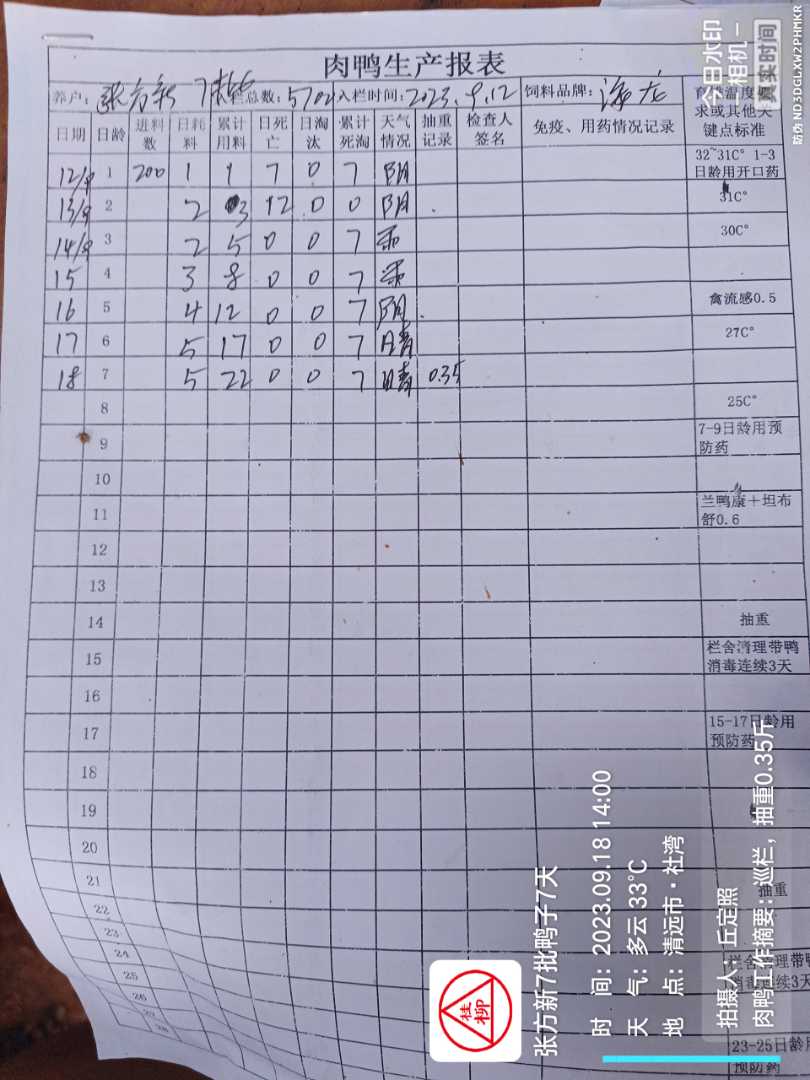 肉鸭生产报表
养户: 张方新 7批 栏总数: 5702 入栏时间: 2023.9.12 饲料品牌: 海龙
日期 日龄 进料数 日耗料 累计用料 日死亡 日淘汰 累计死淘 天气情况 抽重记录 检查人签名 免疫、用药情况记录 温度 求或其他关键点标准
12/9 1 200 1 1 7 0 7 阴 32~31C° 1-3日龄用开口药
13/9 2 2 3 12 0 0 阴 31C°
14/9 3 2 5 0 0 7 30C°
15 4 3 8 0 0 7
16 5 4 12 0 0 7 阴 禽流感0.5
17 6 5 17 0 0 7 晴 27C°
18 7 5 22 0 0 7 晴 0.35
8 25C°
9 7-9日龄用预防药
10
11 兰鸭康+坦布舒0.6
12
13
14 抽重
15 栏舍清理带鸭消毒连续3天
16
17 15-17日龄用预防药
18
19
20
21 抽重
22
23
24 栏舍清理带鸭消毒连续3天
25
26
27
28 23-25日龄用预防药
今日水印
相机
真实时间
防伪 ND3DGLXW2PHMKR
桂柳
张方新7批鸭子7天
时 间: 2023.09.18 14:00
天 气: 多云 33°C
地 点: 清远市·社湾
拍摄人: 丘定照
肉鸭工作摘要: 巡栏，抽重0.35斤